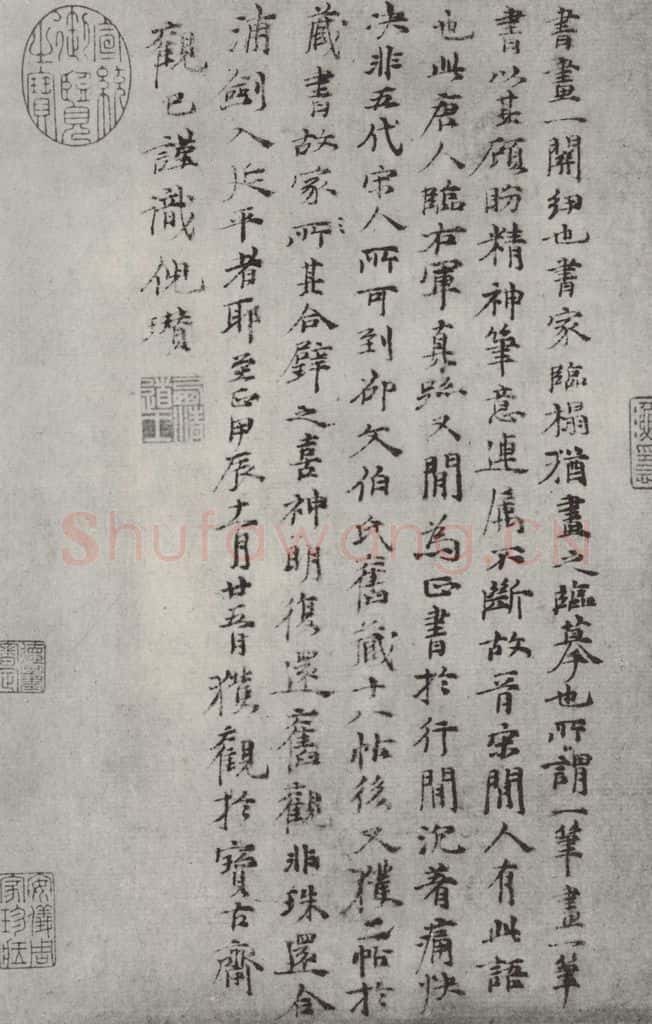 書畫一關紐也書家臨榻猶畫之臨摹也所謂一筆畫一筆
書以其顧盼精神筆意連属不斷故晉宋間人有此語
也此唐人臨右軍真跡又間為正書於行間沉著痛快
决非五代宋人所可到邵文伯氏舊藏十八帖後又獲二帖於
藏書故家所其合璧之喜神明復還舊觀非珠還合
浦劍入延平者耶至正甲辰十一月廿五日獲觀於寶古齋
觀已謹識倪瓚
宣統御覽之寶
安儀周家珍藏
Shufawang.CN